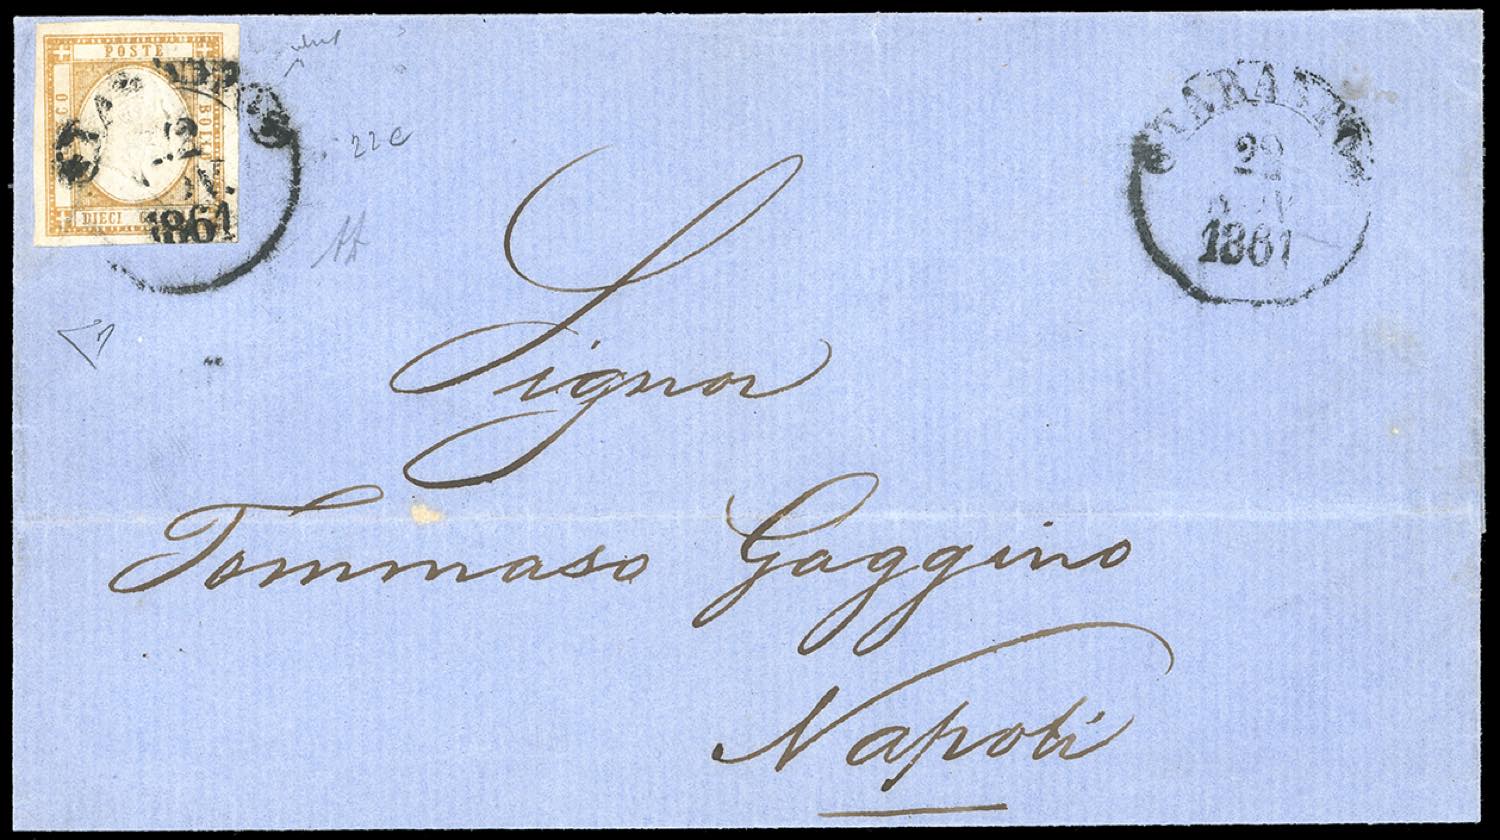 POSTE
BOLLO
DIECI
1861
22c
TARANTO
29
NOV
1861
Signor
Tommaso Gaggino
Napoli